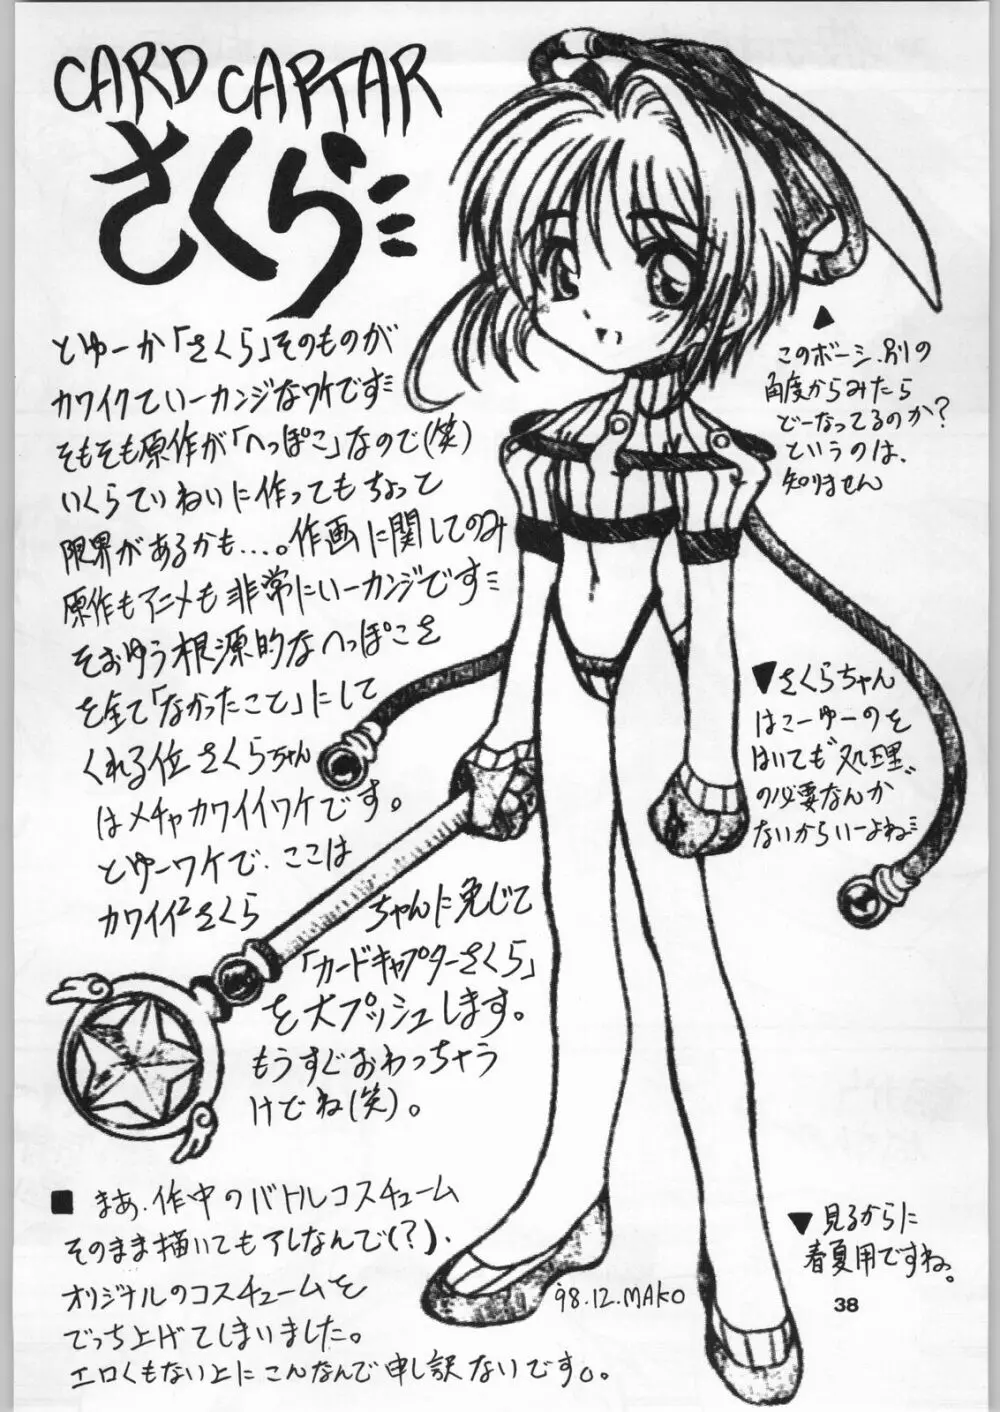 CARD CAPTAR
さくら
とゆーか「さくら」そのものが
カワイクていーカンジなワケです
そもそも原作が「へっぽこ」なので(笑)
いくらていねいに作ってもちょっと
限界があるかも…。作画に関してのみ
原作もアニメも非常にいーカンジです
そおゆう根源的なへっぽこさ
を全て「なかったこと」にして
くれる位さくらちゃん
はメチャカワイイワケです。
とゆーワケで、ここは
カワイイ2さくら
ちゃんに免じて
「カードキャプターさくら」
を大プッシュします。
もうすぐおわっちゃう
けどね(笑)。
▲
このボーシ、別の
角度からみたら
どーなってるのか?
というのは、
知りません
▼さくらちゃん
はこーゆーのを
はいても"処理"
の必要なんか
ないからいーよね
■ まぁ、作中のバトルコスチューム
そのまま描いてもアレなんで(?)、
オリジナルのコスチュームを
でっち上げてしまいました。
エロくもない上にこんなんで申し訳ないです。
▼見るからに
春夏用ですね。
'98.12.MAKO
38